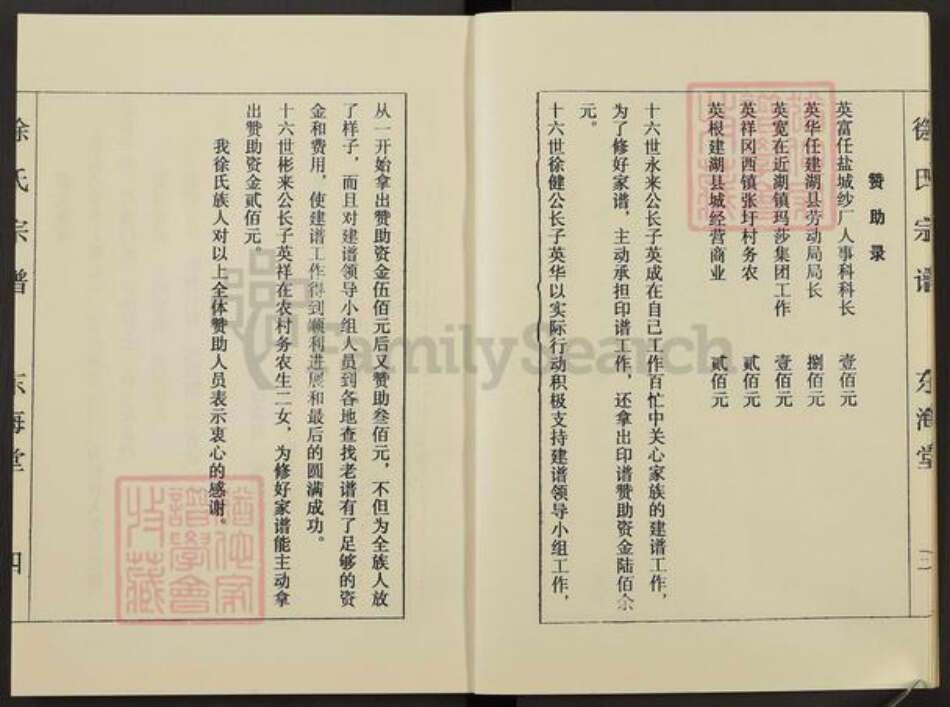 徐氏宗谱
东海堂
三
赞助录
英富任盐城纱厂人事科科长 壹佰元
英华任建湖县劳动局局长 捌佰元
英宽在近湖镇玛莎集团工作 壹佰元
英祥冈西镇张圩村务农 贰佰元
英根建湖县城经营商业 贰佰元
十六世永来公长子英成在自己工作百忙中关心家族的建谱工作,
为了修好家谱,主动承担印谱工作,还拿出印谱赞助资金陆佰余
元。
十六世徐健公长子英华以实际行动积极支持建谱领导小组工作,
从一开始拿出赞助资金伍佰元后又赞助叁佰元,不但为全族人放
了样子,而且对建谱领导小组人员到各地查找老谱有了足够的资
金和费用,使建谱工作得到顺利进展和最后的圆满成功。
十六世彬来公长子英祥在农村务农生二女,为修好家谱能主动拿
出赞助资金贰佰元。
我徐氏族人对以上全体赞助人员表示衷心的感谢。
徐氏宗谱
东海堂
四
FamilySearch